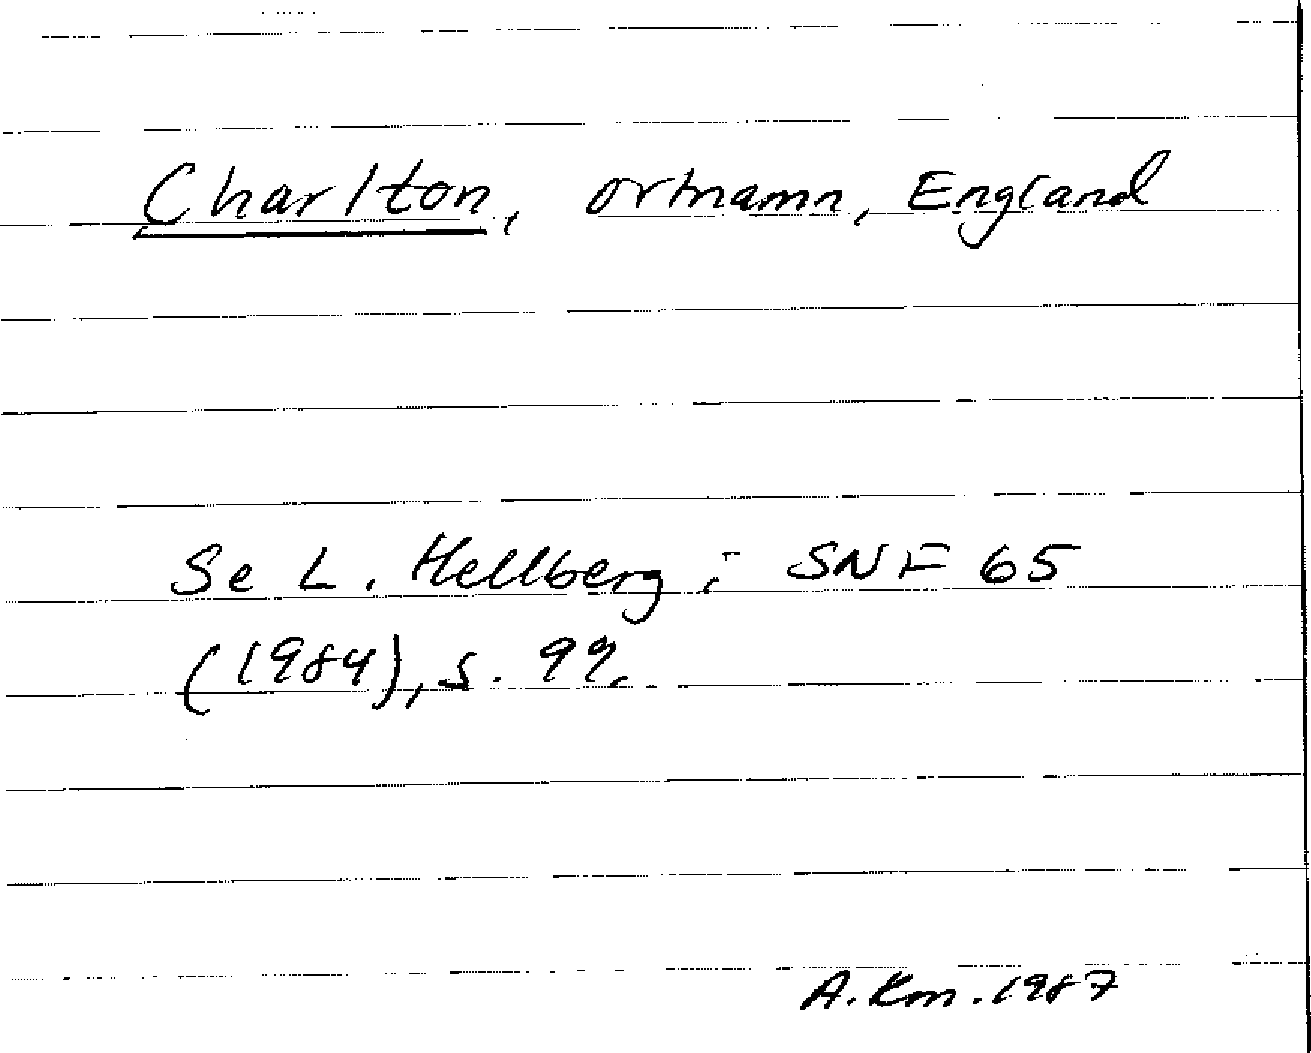 Charlton, ortnamn, England
Se L. Hellberg i SNF 65
(1984), s. 99.
A. Km. 1987